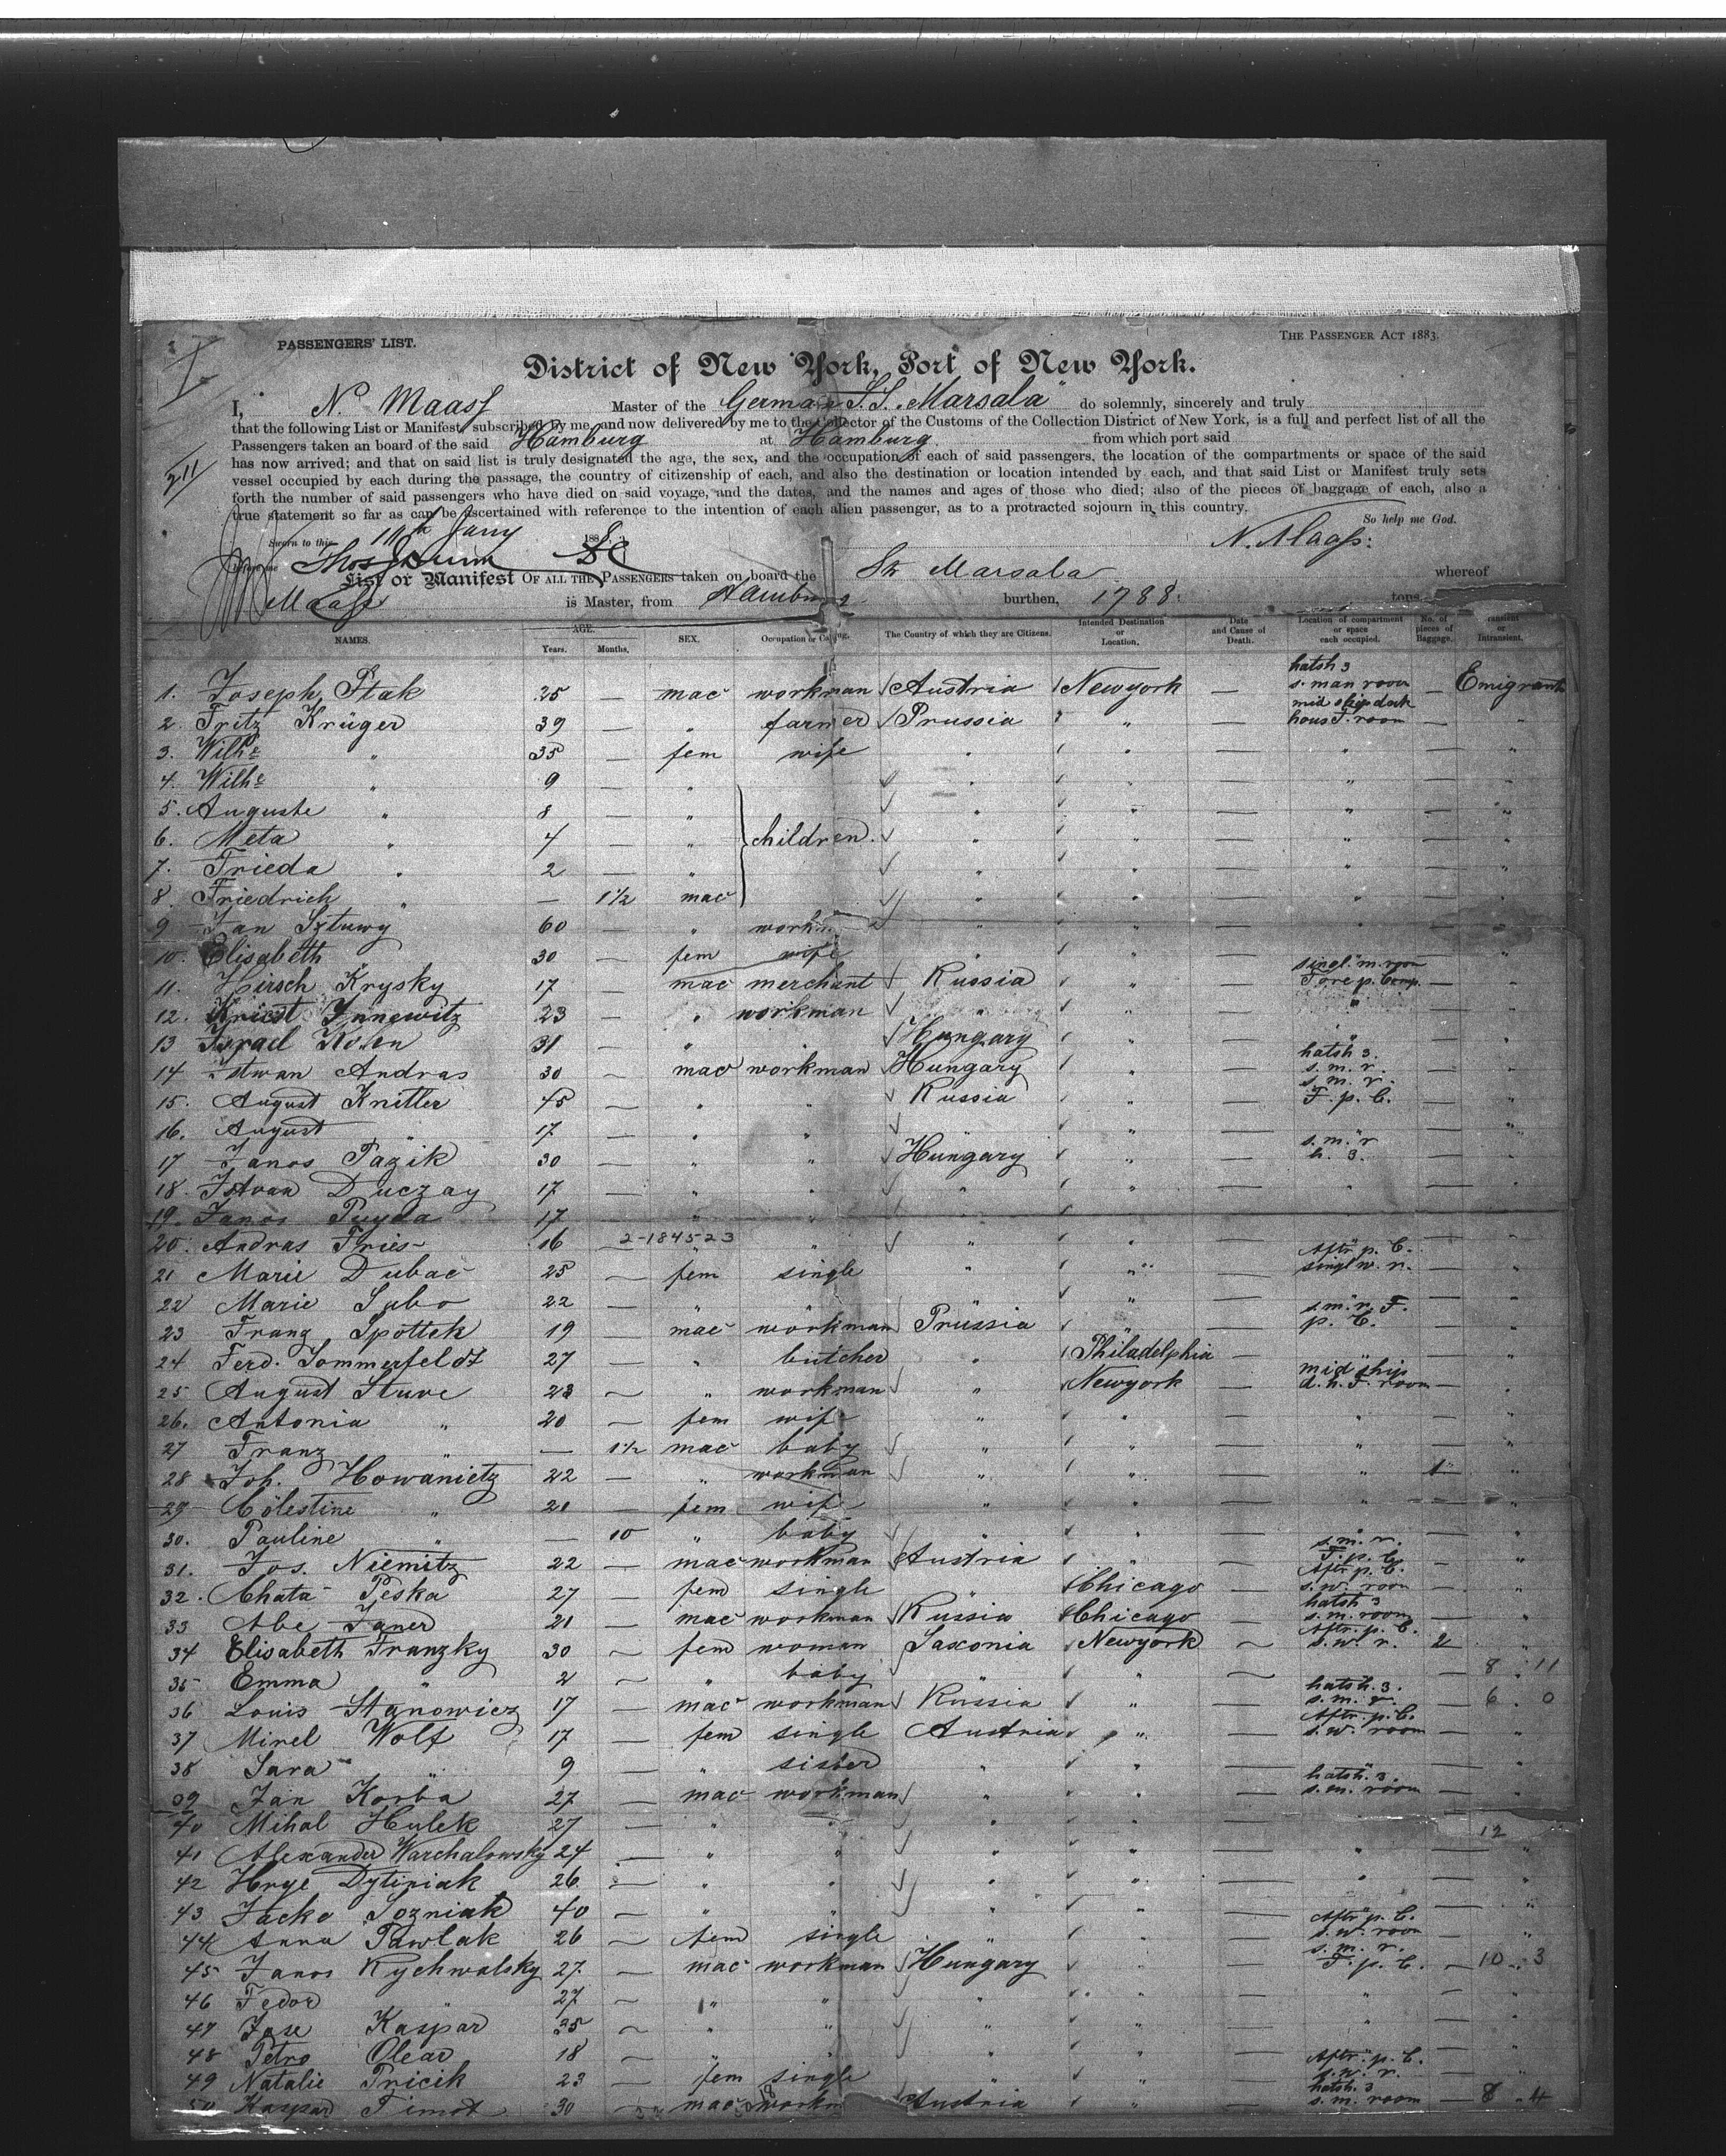 PASSENGERS' LIST.
THE PASSENGER ACT 1883.
District of New York, Port of New York.
I, N. Maass Master of the German S.S. "Marsala" do solemnly, sincerely and truly
that the following List or Manifest, subscribed by me, and now delivered by me to the Collector of the Customs of the Collection District of New York, is a full and perfect list of all the
Passengers taken an board of the said Hamburg at Hamburg from which port said
has now arrived; and that on said list is truly designated the age, the sex, and the occupation of each of said passengers, the location of the compartments or space of the said
vessel occupied by each during the passage, the country of citizenship of each, and also the destination or location intended by each, and that said List or Manifest truly sets
forth the number of said passengers who have died on said voyage, and the dates, and the names and ages of those who died; also of the pieces of baggage of each, also a
true statement so far as can be ascertained with reference to the intention of each alien passenger, as to a protracted sojourn in this country.
So help me God.
Sworn to this Jany 188
N. Maass.
List or Manifest OF ALL THE PASSENGERS taken on board the Str Marsala whereof
Maass is Master, from Hamburg burthen, 1788. tons.
NAMES. AGE. Years. Months. SEX. Occupation or Calling. The Country of which they are Citizens. Intended Destination or Location. Date and Cause of Death. Location of compartment or space each occupied. No. of pieces of Baggage. Transient or Intransient.
1. Joseph Ptak 25 — mac workman Austria Newyork — hatsh 3 s. man room — Emigrant
2. Fritz Krüger 39 — " farmer Prussia " — mid ship deck hous F. room — "
3. Wilhe " 35 — fem wife " " — " — "
4. Wilhe " 9 — " " " — " — "
5. Auguste " 8 — " " " — " — "
6. Meta " 4 — " children. " " — " — "
7. Frieda " 2 — " " " — " — "
8. Friedrich " — 1½ mac " " — " — "
9 Jan Sztuwy 60 — " " " — " — "
10. Elisabeth 30 — fem wife " " — " — "
11. Hirsch Krysky 17 — mac merchant Russia " — singl. m. room Fore p. Comp. — "
12. 23 — " workman " " — " — "
13 Israel 31 — " " Hungary " — " — "
14 Istwan Andras 30 — mac workman Hungary " — hatsh 3. s. m. r. — "
15. August Knitter 45 — " " Russia " — s. m. r. F. p. C. — "
16. August " 17 — " " " " — — "
17 Janos Pazik 30 — " " Hungary " — s. m. r h. 3. — "
18. Istvan Duczay 17 — " " " " — " — "
19. Janos Puyda 17 — " " " — "
20. Andras Fries 16 2-184523 " " " — — "
21 Marie Dubac 25 — fem single " " — Aftr p. C. singl w. r. — "
22 Marie Sabo 22 — " " " — — "
23 Franz Spottek 19 — mac workman Prussia " — s. m. r. F. p. C. — "
24 Ferd. Sommerfeldt 27 — " butcher " Philadelphia — " — "
25 August Stuve 23 — " workman " Newyork — mid ship d. h. F. room — "
26. Antonia " 20 — fem wife " " — " — "
27 Franz " — 1½ mac baby " " — " — "
28 Joh. Howanietz 22 — " workman " " — " 1 "
29 Cölestine " 21 — fem wife " " — " — "
30. Pauline " — 10 " baby " " — " — "
31. Jos. Niemitz 22 — mac workman Austria " — s. m. r. F. p. C. — "
32. Chata Peska 27 — fem single Chicago — Aftr p. C. s. w. room — "
33 Abe Janer 21 — mac workman Russia Chicago — hatsh 3 s. m. room — "
34 Elisabeth Franzky 30 — fem woman Saxonia Newyork — Aftr. p. C. s. w. r. 2 "
35 Emma " 2 — " baby " " — 8 11
36 Louis Stanowicz 17 — mac workman Russia " — hatsh. 3. s. m. r. — 6 0
37 Mirel Wolf 17 — fem single Austria " — Aftr. p. C. s. w. room — "
38 Sara " 9 — " sister " " — " — "
39 Jan Korba 27 — mac workman " " — hatsh. 3. s. m. room — "
40 Mihal Hulek 27 — " " " " — — 12
41 Alexander Warchalowsky 24 — " " " " — " — "
42 Hrye Dytiniak 26 — " " " " — " — "
43 Jacko Sozniak 40 — " " " " — — "
44 Anna Pawlak 26 — fem single " " — Aftr p. C. s. w. room — "
45 Janos Rychwalsky 27 — mac workman Hungary " — s. m. r. F. p. C. — 10 3
46 Fedor " 27 — " " " " — " — "
47 Jose Kaspar 35 — " " " " — " — "
48 Petro Olear 18 — " " " " — — "
49 Natalie Pricik 23 — fem single " " — Aftr. p. C. s. w. r. — "
50 Kaspar Timot 30 — mac workm Austria " — hatsh. 3 s. m. room — 8 4